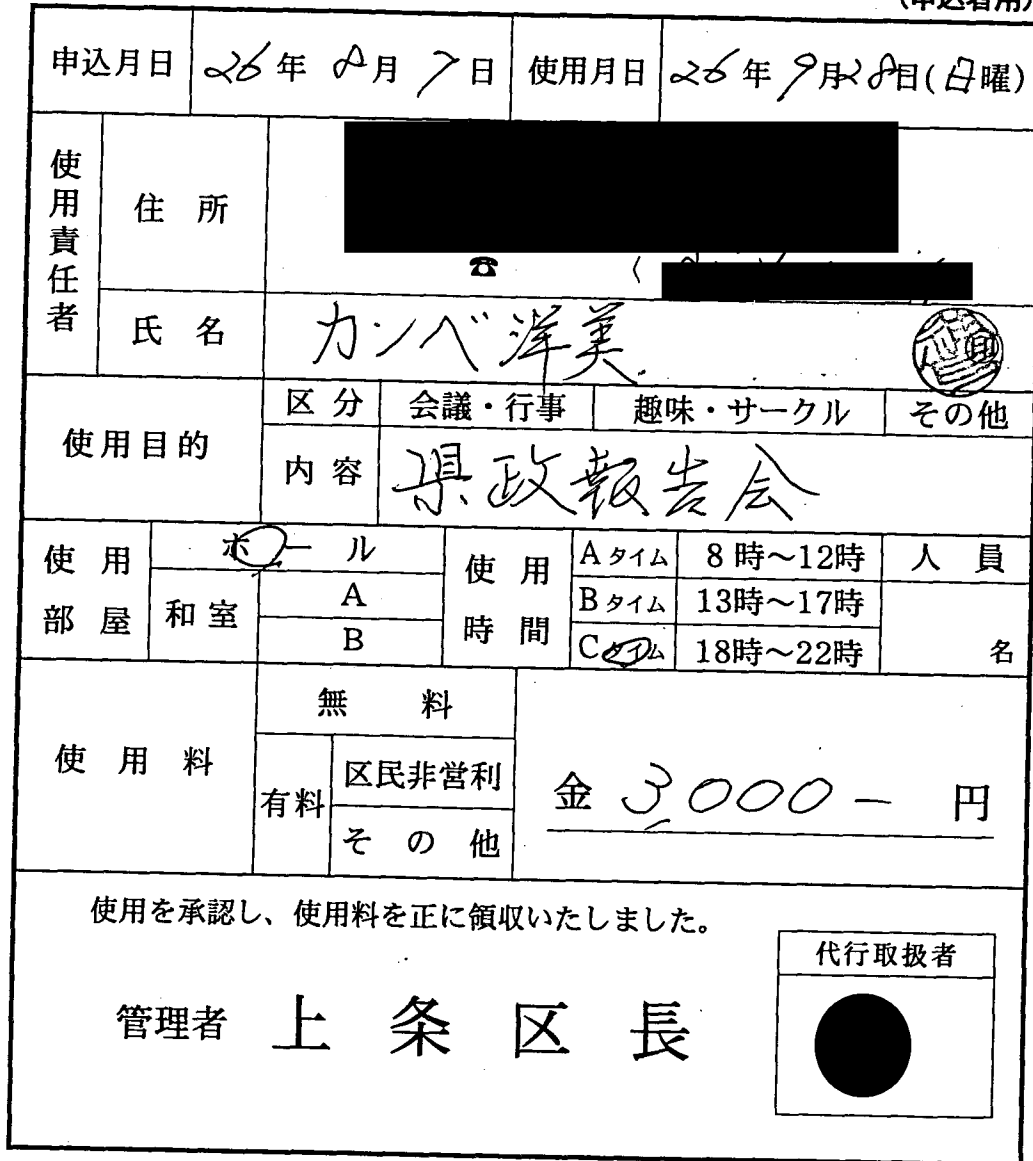 (申込者用)
申込月日 26年 8月 7日 使用月日 26年 9月28日(日曜)
使用責任者 住所
☎ (
氏名 カンベ洋美
使用目的 区分 会議・行事 趣味・サークル その他
内容 県政報告会
使用部屋 ホール
和室 A
B
使用時間 Aタイム 8時～12時
Bタイム 13時～17時
Cタイム 18時～22時
人員
名
使用料 無料
有料 区民非営利
その他
金 3,000- 円
使用を承認し、使用料を正に領収いたしました。
代行取扱者
管理者 上条区長